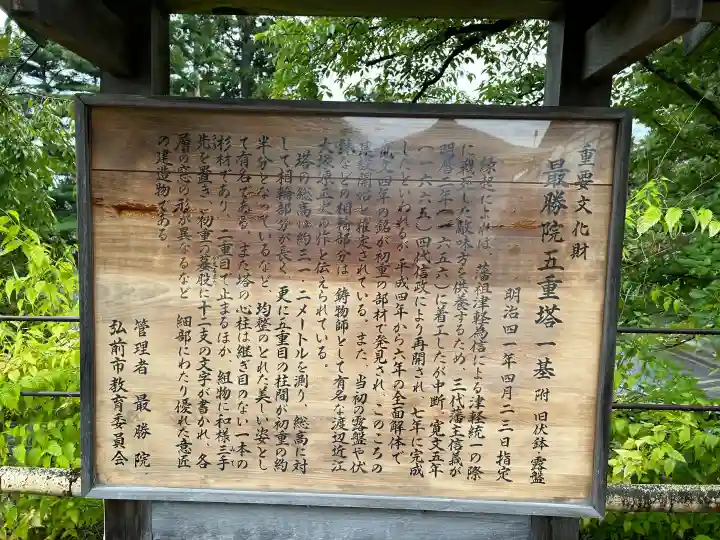 重要文化財
最勝院五重塔一基 附 旧伏鉢・露盤
明治四一年四月二三日指定
縁起によれば、藩祖津軽為信による津軽統一の際
に戦死した敵味方を供養するため、三代藩主信義が
明暦二年(一六五六)に着工したが中断、寛文五年
(一六六五)四代信政により再開され、七年に完成
したといわれるが、平成四年から六年の全面解体で
寛文四年の銘が初重の部材で発見され、このころの
開始と推定されている。また、当初の露盤や伏
鉢などの相輪部分は、鋳物師として有名な渡辺近江
大掾源正次の作と伝えられている。
塔の総高は約三一・二メートルを測り、総高に対
して相輪部分が長く、更に五重目の柱間が初重の約
半分となっているなど、均整のとれた美しい姿とし
て有名である。また塔の心柱は継ぎ目のない一本の
杉材であり、二重目で止まるほか、組物に和様三手
先を置き、初重の蟇股に十二支の文字が書かれ、各
層の窓の形が異なるなど、細部にわたり優れた意匠
の建造物である。
管理者 最勝院
弘前市教育委員会